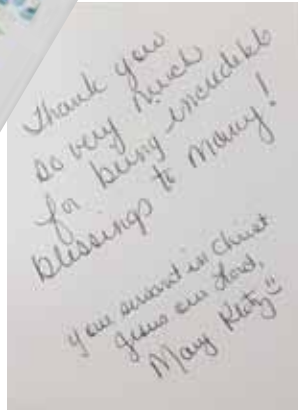 Thank you
so very much
for being incredible
blessings to many!
your servant in Christ
Jesus our Lord,
Mary